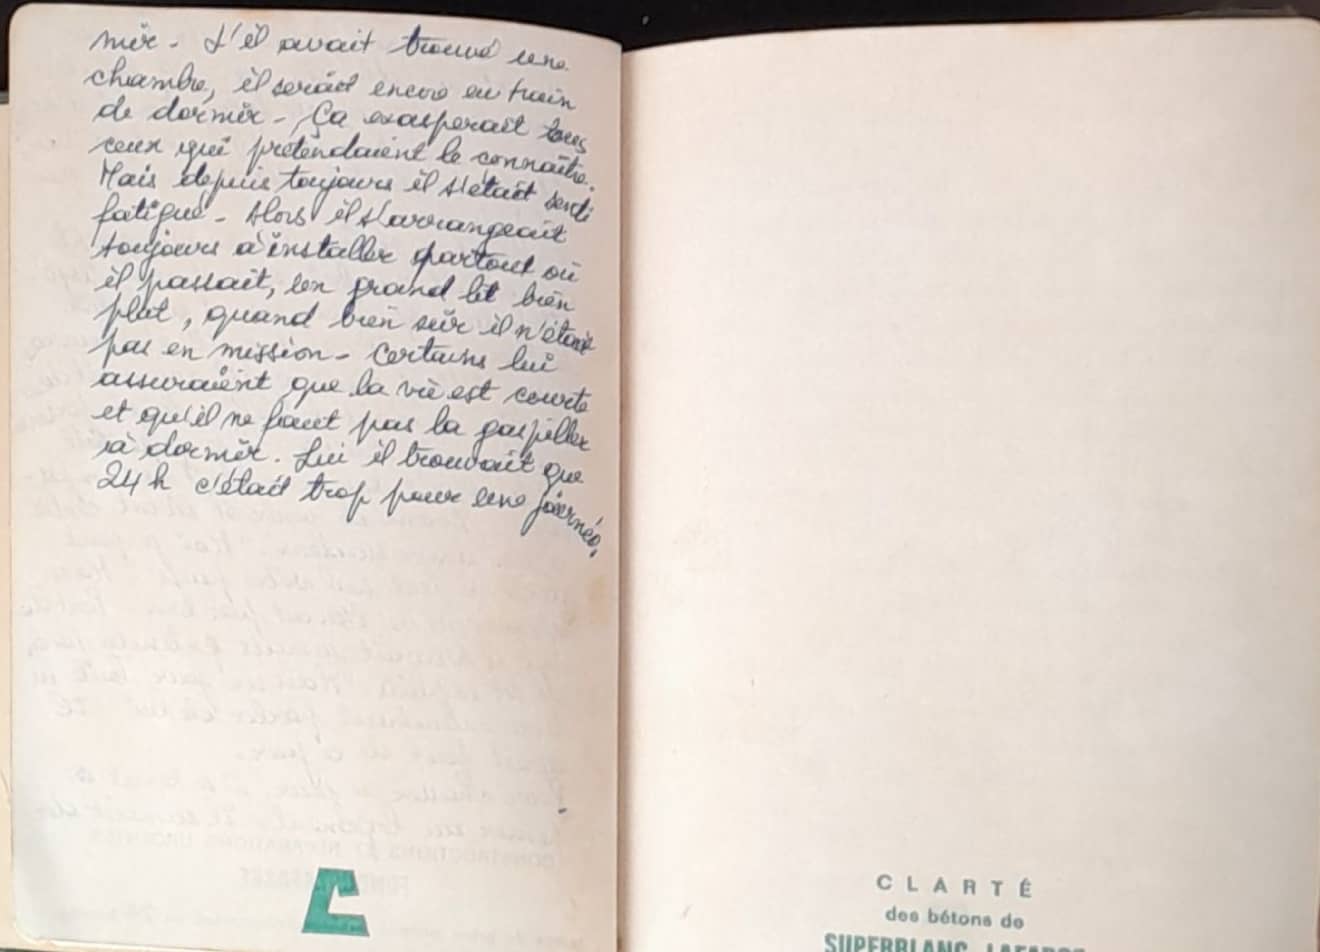 mir. S'il avait trouvé une
chambre, il serait encore en train
de dormir. Ça exasperait tous
ceux qui prétendaient le connaître.
Mais depuis toujours il s'était senti
fatigué. Alors il s'arrangeait
toujours à installer partout où
il passait, un grand lit bien
plat, quand bien sûr il n'était
pas en mission. Certains lui
assuraient que la vie est courte
et qu'il ne faut pas la gaspiller
à dormir. Lui il trouvait que
24 h c'était trop pour une journée.
CLARTÉ
des bétons de
SUPERBLANC LAFARGE